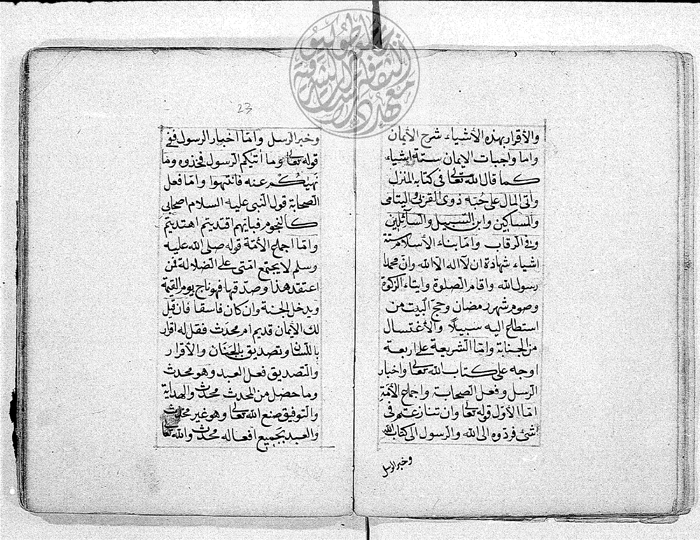 والاقرار بهذه الأشياء شرح الأيمان
واما واجبات الايمان ستة اشياء
كما قال الله تعالى فى كتابه المنزل
واتى المال على حبه ذوى القربى واليتامى
والمساكين وابن السبيل والسائلين
وفى الرقاب وامّا بناء الأسلام ستة
اشياء شهادة ان لا اله الا الله وانّ محمدا
رسول الله واقام الصلوة وايتاء الزكوة
وصوم شهر رمضان وحج البيت من
استطاع اليه سبيلا والأغتسال
من الجنابة وامّا الشريعة على اربعة
اوجه على كتاب الله تعالى واخبار
الرسل وفعل الصحابة واجماع الأمّة
امّا الأوّل قوله تعالى وان تنازعتم فى
شئ فردّوه الى الله والرسول الى كتاب الله
وخبر الرسل
23
وخبر الرسل وامّا اخبار الرسول ففى
قوله تعالى وما أتيكم الرّسول فخذوه وما
نهيكم عنه فانتهوا وامّا فعل
الصحابة قول النّبى عليه السلام اصحابى
كالنجوم فبايّهم اقتديتم اهتديتم
وامّا اجماع الأمّة قوله صلى الله عليه
وسلم لا يجتمع امّتى على الضلالة فمن
اعتقد هذا وصدّقها فهو ناج يوم القيمة
ويدخل الجنة وان كان فاسقا فان قيل
لك الأيمان قديم ام محدث فقل له اقرار
باللسان وتصديق بالجنان والأقرار
والتصديق فعل العبد وهو محدث
وما حصل من المحدث محدث والهداية
والتوفيق صنع الله تعالى وهو غير محدث
والعبد بجميع افعاله محدث والله تعالى